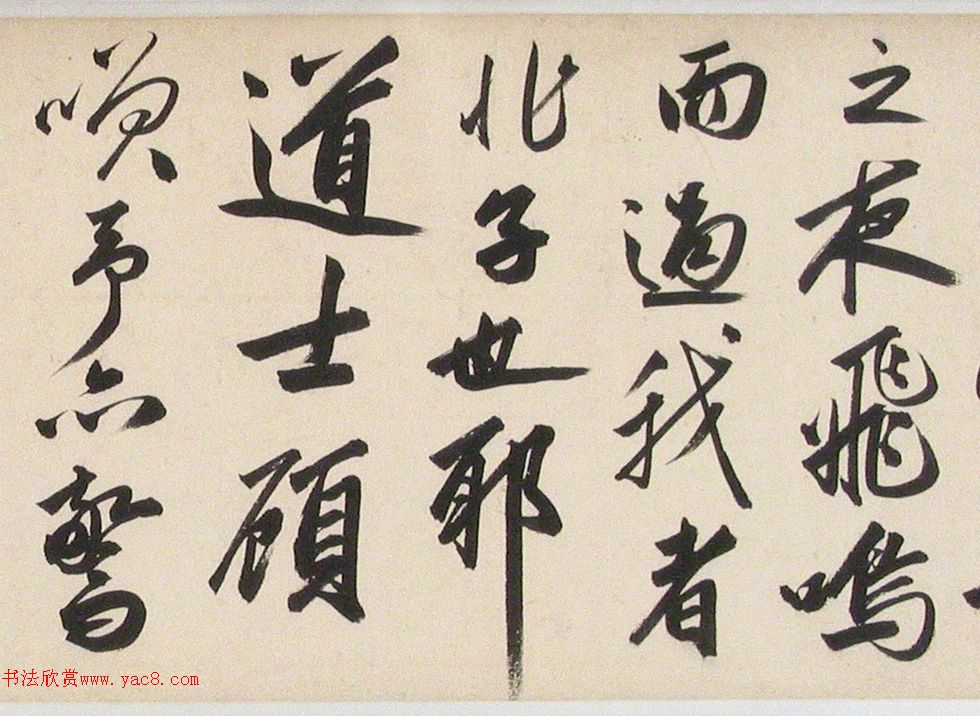 之夜飛鳴
而過我者
非子也耶
道士顧
咲予亦警
书法欣赏www.yac8.com